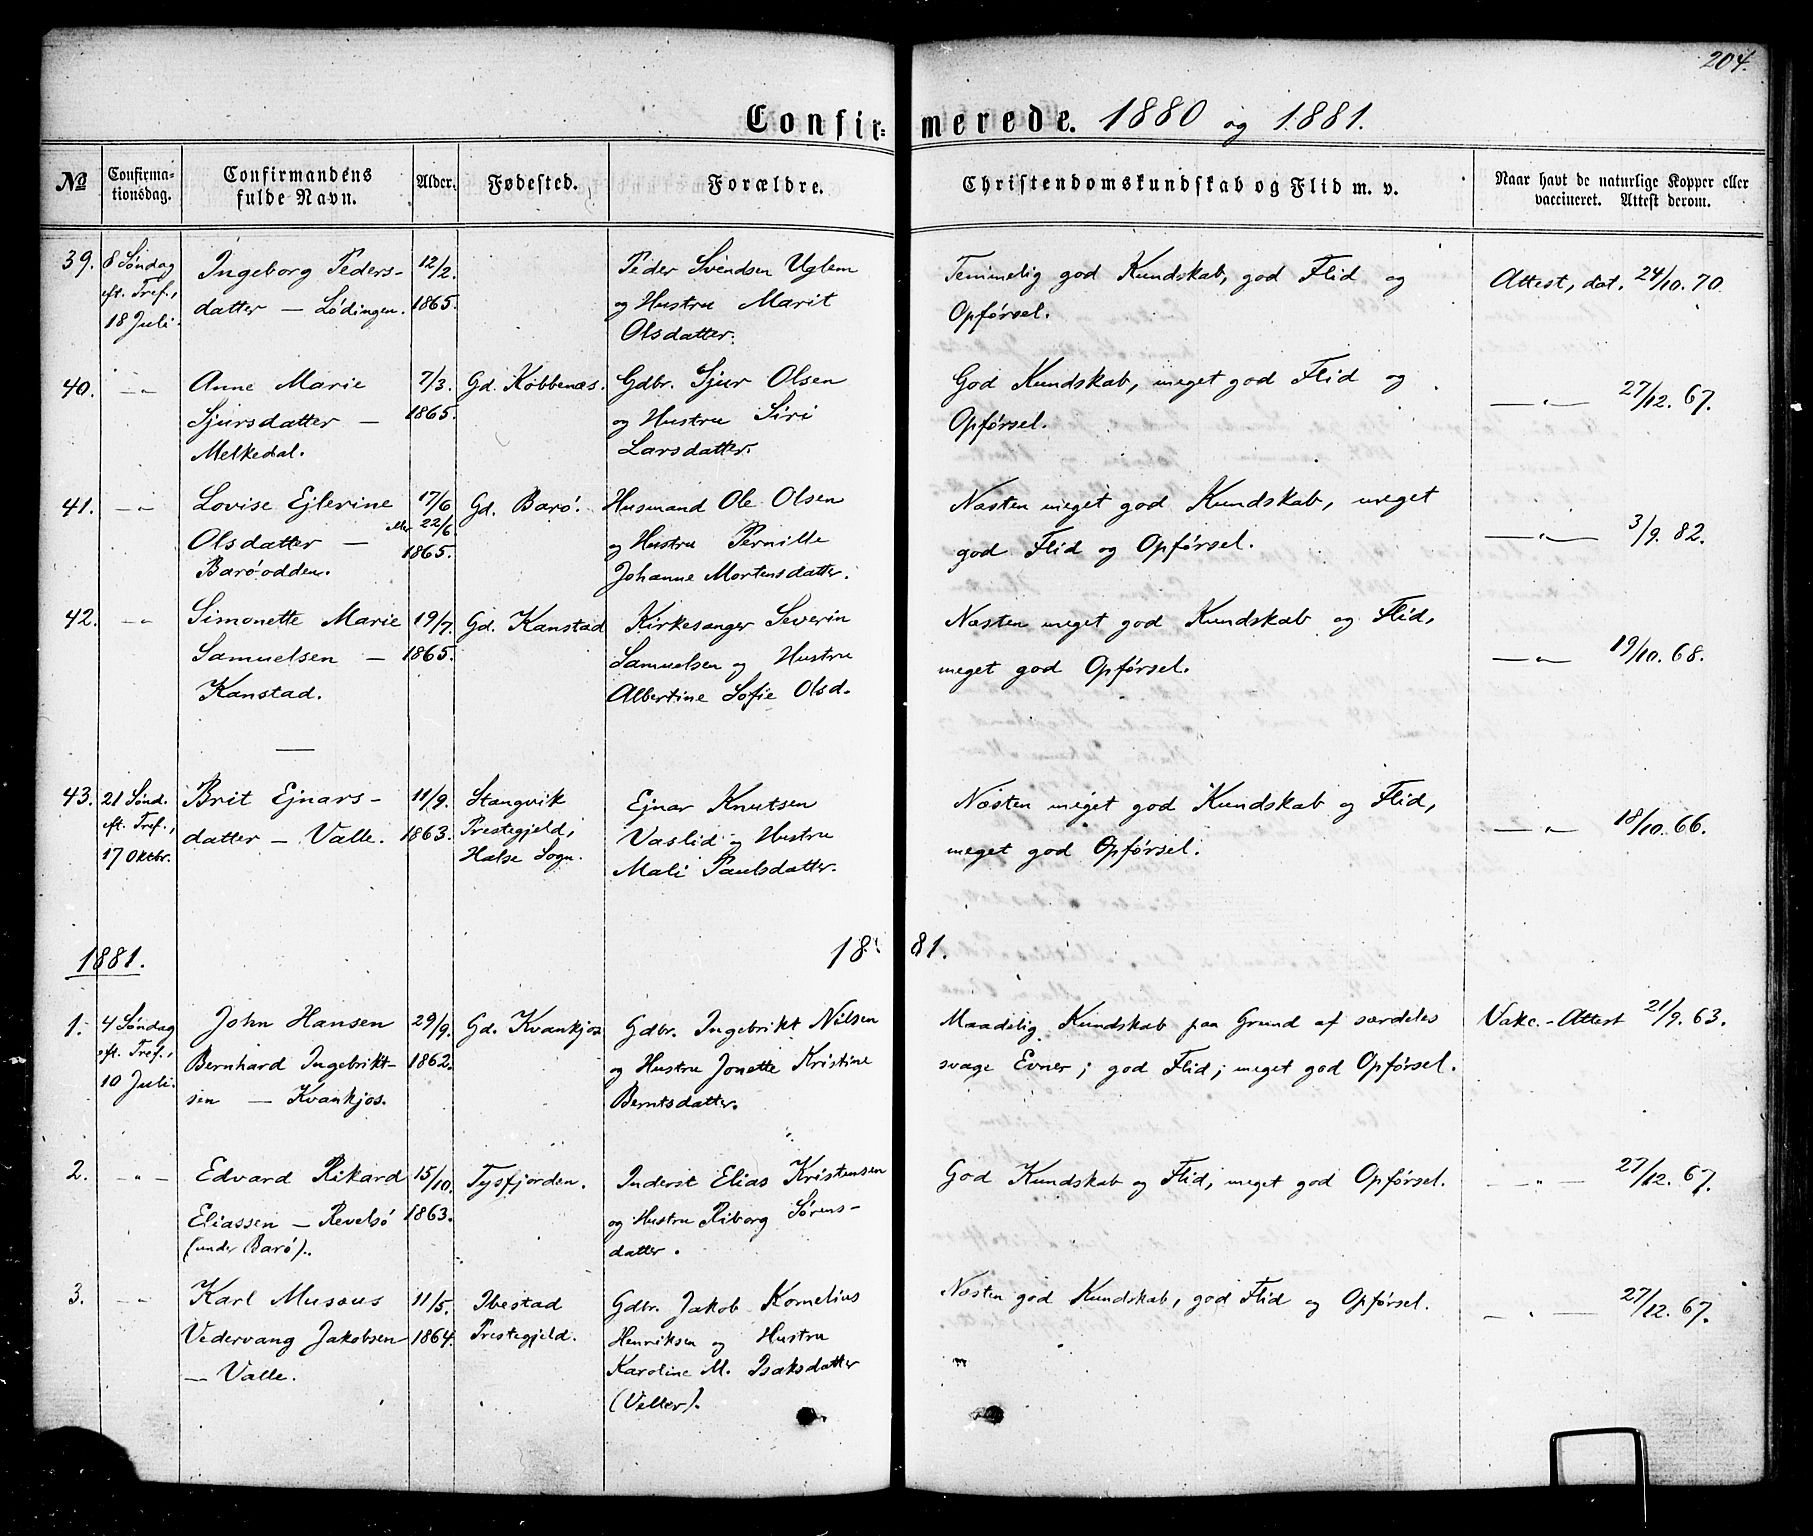 204.
Confir= merede. 1880 og 1881.
No
Confirma-
tionsdag.
Confirmandens
fulde Navn.
Alder.
Fødested.
Forældre.
Christendomskundskab og Flid m. v.
Naar havt de naturlige Kopper eller
vaccineret. Attest derom.
39. 8 Søndag Ingeborg Peders- 12/2. Peder Svendsen Uglem Temmelig god Kundskab, god Flid og Attest, dat. 24/10. 70.
eft. Tref., datter — Lødingen. 1865. og Hustru Marit Opførsel.
18 Juli. Olsdatter.
40. —„— Anne Marie 7/3. Gd. Kobbenæs. Gdbr. Sjur Olsen God Kundskab, meget god Flid og —„— 27/12. 67.
Sjursdatter — 1865. og Hustru Siri Opførsel.
Melkedal. Larsdatter.
41. —„— Lovise Ejlerine 17/6 Gd. Barø. Husmand Ole Olsen Næsten meget god Kundskab, meget —„— 3/9. 82.
Olsdatter — eller 22/6. og Hustru Pernille god Flid og Opførsel.
Barøodden. 1865. Johanne Mortensdatter.
42. —„— Simonette Marie 19/7. Gd. Kanstad Kirkesanger Severin Næsten meget god Kundskab og Flid, —„— 19/10. 68.
Samuelsen — 1865. Samuelsen og Hustru meget god Opførsel.
Kanstad. Albertine Sofie Olsd.
43. 21 Sønd. Brit Ejnars- 11/9. Stangvik Ejnar Knutsen Næsten meget god Kundskab og Flid, —„— 18/10. 66.
eft. Tref., datter — Valle. 1863. Prestegjeld, Vaslid og Hustru meget god Opførsel.
17 Oktbr. Halse Sogn. Mali Paulsdatter.
1881. 18 81.
1. 4 Søndag John Hansen 29/9. Gd. Kvankjos Gdbr. Ingebrikt Nilsen Maadelig Kundskab paa Grund af særdeles Vakc.-Attest 21/9. 63.
eft. Tref., Bernhard Ingebrikt- 1862. og Hustru Jonette Kristine svage Evner; god Flid; meget god Opførsel.
10 Juli. sen — Kvankjos. Berntsdatter.
2. —„— Edvard Rikard 15/10. Tysfjorden. Inderst Elias Kristensen God Kundskab og Flid, meget god Opførsel. —„— 27/12. 67.
Eliassen — Revelsø 1863. og Hustru Riborg Sørens-
(under Barø). datter.
3. —„— Karl Musæus 11/5. Ibestad Gdbr. Jakob Kornelius Næsten god Kundskab, god Flid og Opførsel. —„— 27/12. 67.
Vedervang Jakobsen 1864. Prestegjeld. Henriksen og Hustru
— Valle. Karoline M. Isaksdatter
(Valler).